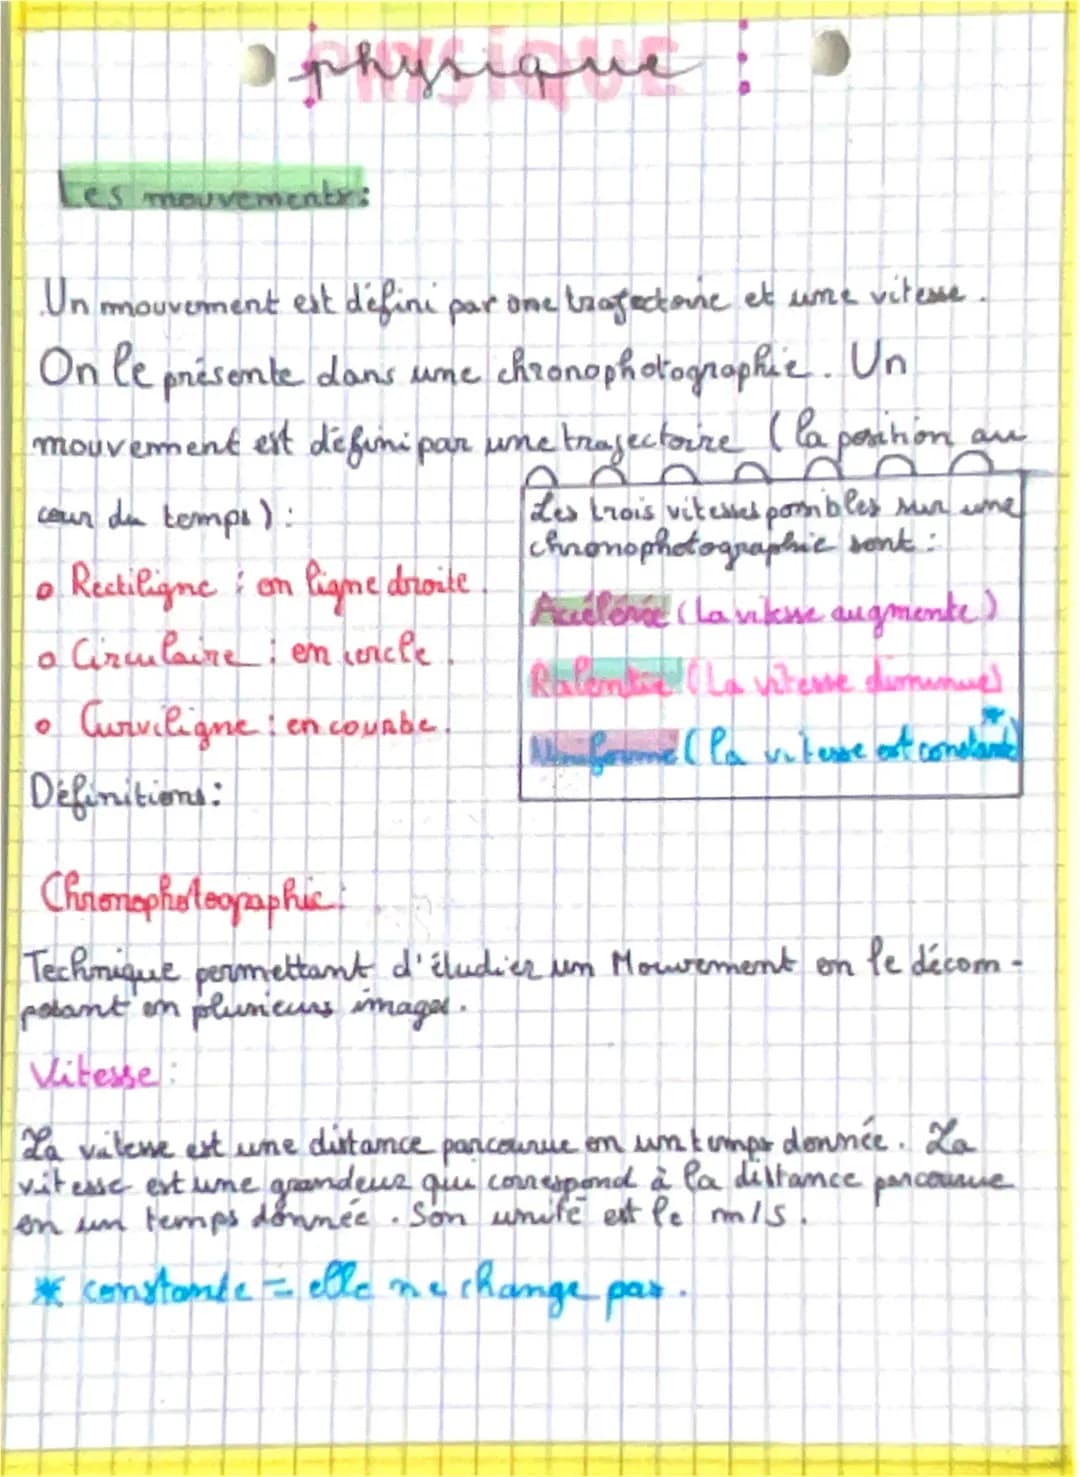 physique
Les mouvements:
Un mouvement est défini par une trajectoire et une vitesse.
On le présente dans une chronophotographie. Un
mouvement est défini par une trajectoire (la position au
cour du temps):
• Rectiligne : en ligne droite.
• Circulaire : en cercle.
• Curviligne : en courbe.
Les trois vitesses possibles sur une
chronophotographie sont :
Accélérée (La vitesse augmente)
Ralentie (La vitesse diminue)
Uniforme (la vitesse est constante)*
Définitions:
Chronophotographie:
Technique permettant d'étudier un Mouvement en le décom-
posant en plusieurs images.
Vitesse:
La vitesse est une distance parcourue en un temps donnée. La
vitesse est une grandeur qui correspond à la distance parcourue
en un temps donnée. Son unité est le m/s.
* constante = elle ne change pas.